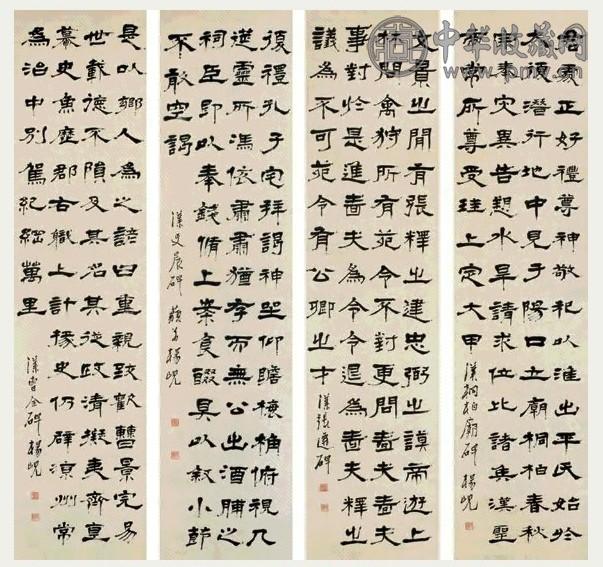 君處正好禮尊神敬祀以淮出平氏始於
大復潛行地中見于陽口立廟桐柏春秋
宗奉災異告愬水旱請求位比諸侯漢聖
常所尊受珪上定大甲
漢桐柏廟碑 楊峴
文景之間有張釋之建忠弼之謨帝遊上
林問禽狩所有苑令不對更問嗇夫嗇夫
事對於是進嗇夫為令令退為嗇夫釋之
議為不可苑令有公卿之才
漢張遷碑
復禮孔子宅拜謁神坐仰瞻榱桷俯視几
筵靈所馮依肅肅猶存而無公出酒脯之
祠臣即以奉錢脩上案食醊具以敘小節
不敢空謁
漢史晨碑 藐翁楊峴
是以鄉人為之諺曰重親致歡曹景完易
世載德不隕及其名其從政清擬夷齊直
慕史魚歷郡右職上計掾史仍辟涼州常
為治中別駕紀綱萬里
漢曹全碑 楊峴